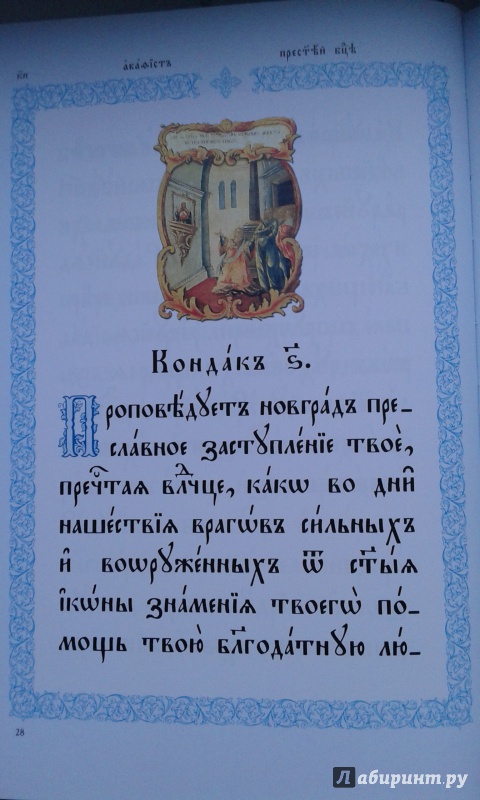 н҃и
а҆ка́ѳїстъ
прест҃ѣй бц҃ѣ
Конда́къ ѕ҃.
Проповѣ́дуетъ новгра́дъ пре-
сла́вное заступле́нїе твоѐ,
пречⷭ҇таѧ влⷣчце, ка́кѡ во днѝ
наше́ствїѧ врагѡ́въ си́льныхъ
и҆ воѡруже́нныхъ ѿ ст҃ы́ѧ
і҆кѡ́ны зна́менїѧ твоегѡ̀ по́-
мощь твою̀ бл҃года́тную лю-
28
Лабиринт.ру